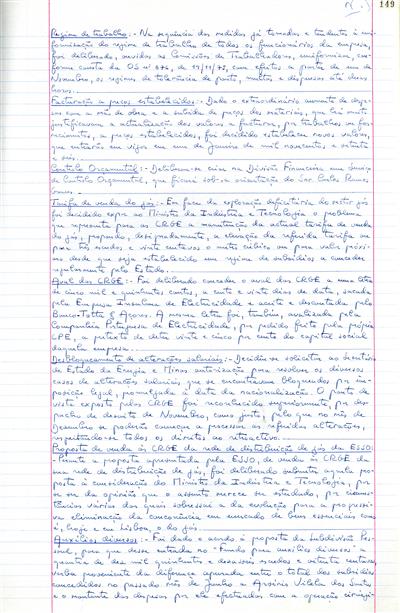 149
Regime de trabalho:- Na sequência das medidas já tomadas e tendentes à uni-
formização do regime de trabalho de todos os funcionários da empresa,
foi deliberado, ouvidas as Comissões de Trabalhadores, uniformizar, con-
forme consta da OS nº 676, de 19/11/75, com efeitos a partir de um de
Novembro, os regimes de tolerância de ponto, multas e dispensas até duas
horas.
Facturação a preços estabelecidos:- Dado o extraordinário aumento de despe-
sas com a mão de obra e a subida de preços dos materiais, que há muito
justificavam a actualização dos valores a facturar, por trabalhos ou for-
necimentos, a preços estabelecidos, foi decidido estabelecer novos valores,
que entrarão em vigor em um de Janeiro de mil novecentos e setenta
e seis.
Controlo Orçamental:- Deliberou-se criar na Divisão Financeira um Serviço
de Controlo Orçamental, que ficará sob a orientação do Sr. Carlos Ramos
Tarifa de venda do gás:- Em face da exploração deficitária do sector gás
foi decidido expor ao Ministro da Indústria e Tecnologia o problema
que representa para as CRGE a manutenção da actual tarifa de venda
do gás, propondo, designadamente, a elevação da referida tarifa ou
para três escudos e vinte centavos o metro cúbico ou para valor próxi-
mo desde que seja estabelecido um regime de subsídios a conceder
regularmente pelo Estado.
Aval das CRGE:- Foi deliberado conceder o aval das CRGE a uma letra
de cinco mil e quinhentos contos, a cento e vinte dias de data, sacada
pela Empresa Insulana de Electricidade e aceite e descontada pelo
Banco Totta & Açores. A mesma letra foi, também, avalizada pela
Companhia Portuguesa de Electricidade, por pedido feito pela própria
CPE, a pretexto de deter vinte e cinco por cento do capital social
daquela empresa.
Desbloqueamento de alterações salariais:- Decidiu-se solicitar ao Secretário
de Estado da Energia e Minas autorização para resolver os diversos
casos de alterações salariais que se encontravam bloqueados por im-
posição legal, promulgada à data da nacionalização. O ponto de
vista exposto pelas CRGE foi reconhecido superiormente, por des-
pacho de dezoito de Novembro, como justo, pelo que no mês de
Dezembro se poderão começar a processar as referidas alterações,
respeitando-se todos os direitos ao retroactivo.
Proposta de venda às CRGE da rede de distribuição de gás da ESSO:-
- Perante a proposta apresentada pela ESSO de venda às CRGE da
sua rede de distribuição de gás, foi deliberado submeter aquela pro-
posta à consideração do Ministro da Indústria e Tecnologia, por
se ser da opinião que o assunto merece ser estudado, por circuns-
tâncias várias das quais sobressai a da evolução para a progressi-
va eliminação da concorrência em mercado de bens essenciais como
é, hoje e em Lisboa, o do gás.
Auxílios diversos:- Foi dado o acordo à proposta da Subdivisão Pes-
soal, para que desse entrada no "Fundo para auxílios diversos" a
quantia de dez mil quinhentos e dezasseis escudos e oitenta centavos
verba proveniente da diferença apurada entre o total dos subsídios
concedidos no passado mês de Junho a Avelino Vilela dos Santos
e o montante das despesas por ele efectuadas com a operação cirúrgi-